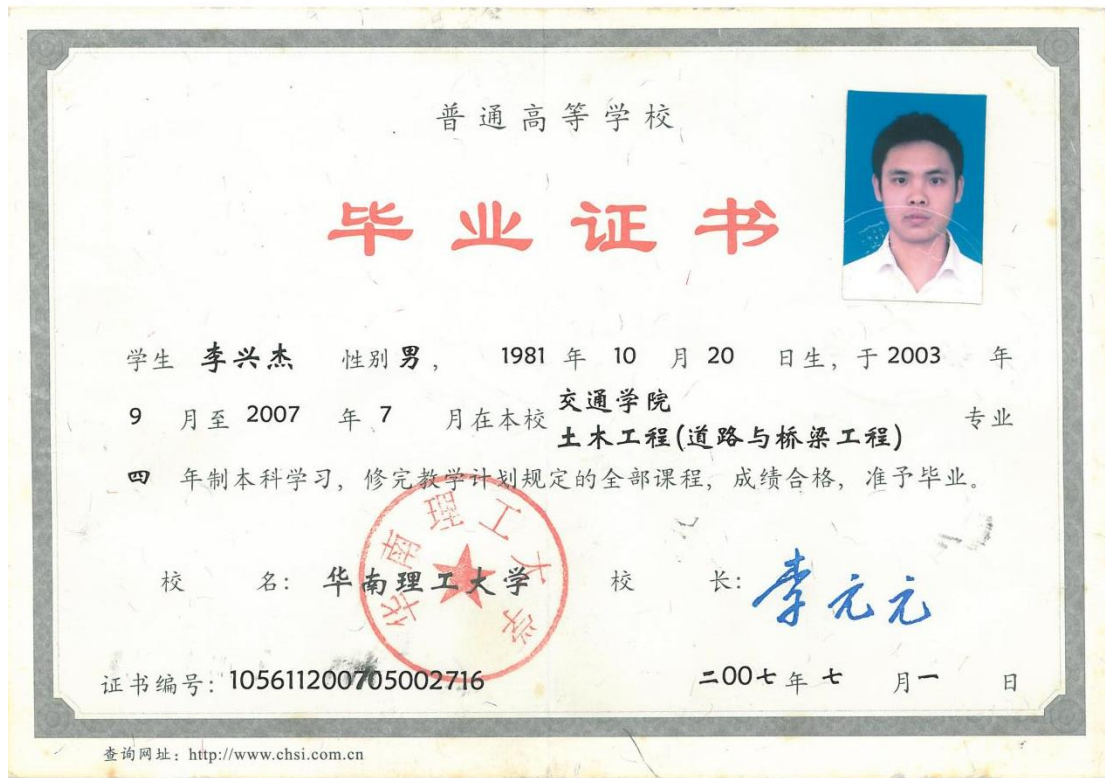 普通高等学校
毕业证书
学生 李兴杰 性别 男， 1981 年 10 月 20 日生，于 2003 年
9 月至 2007 年 7 月在本校 交通学院
土木工程(道路与桥梁工程) 专业
四 年制本科学习，修完教学计划规定的全部课程，成绩合格，准予毕业。
华南理工大学
校 名： 华南理工大学 校 长： 李元元
证书编号：105611200705002716 二00七 年 七 月 一 日
查询网址：http://www.chsi.com.cn